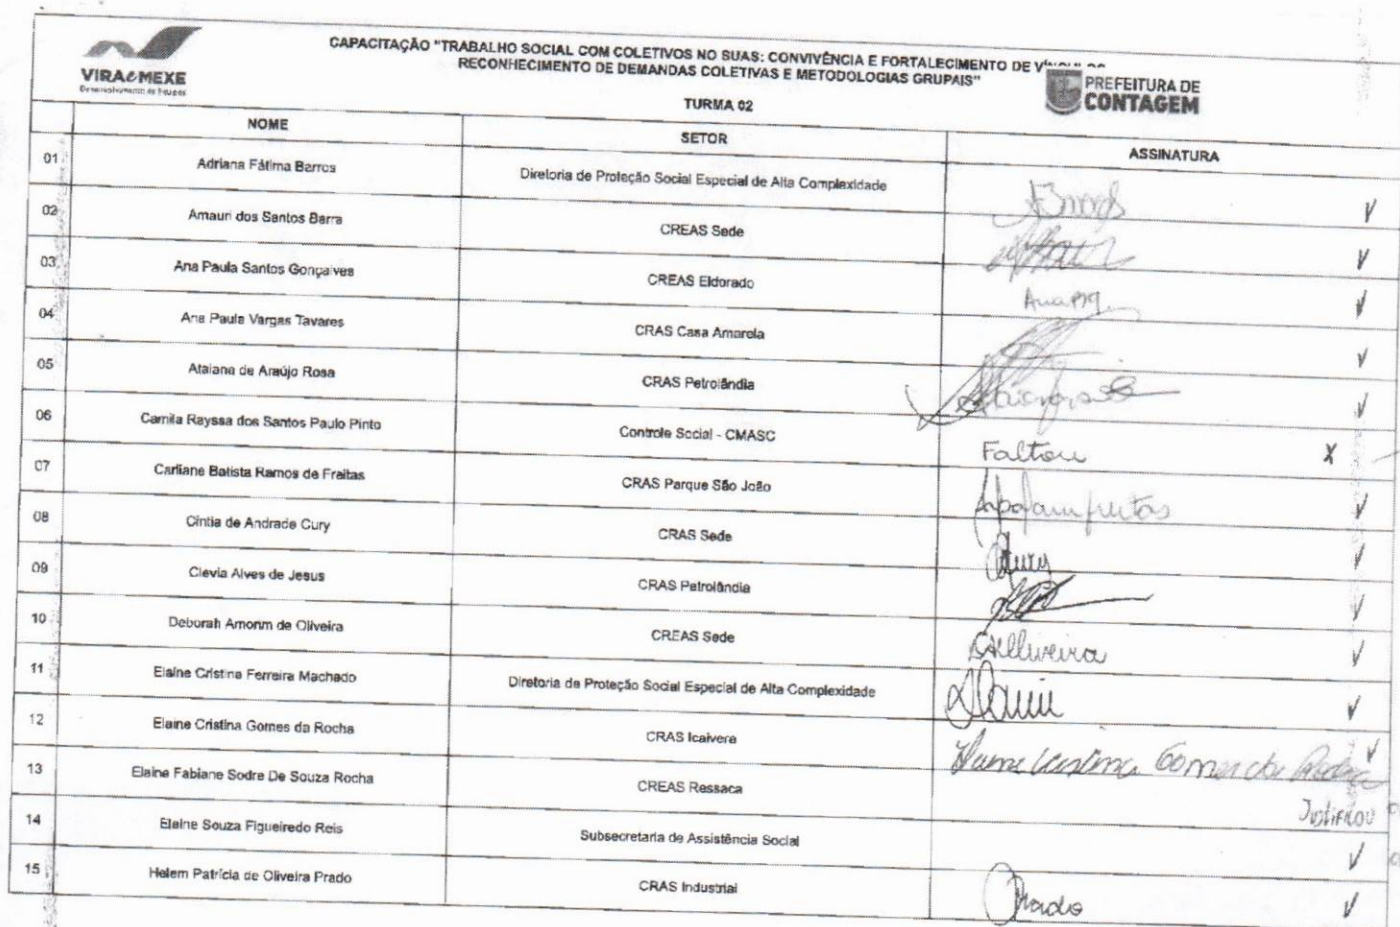 VIRA&MEXE
Desenvolvimento de Equipes
CAPACITAÇÃO "TRABALHO SOCIAL COM COLETIVOS NO SUAS: CONVIVÊNCIA E FORTALECIMENTO DE
RECONHECIMENTO DE DEMANDAS COLETIVAS E METODOLOGIAS GRUPAIS"
PREFEITURA DE
CONTAGEM
TURMA 02
NOME SETOR ASSINATURA
01 Adriana Fátima Barros Diretoria de Proteção Social Especial de Alta Complexidade
02 Amauri dos Santos Barra CREAS Sede
03 Ana Paula Santos Gonçalves CREAS Eldorado
04 Ana Paula Vargas Tavares CRAS Casa Amarela
05 Ataiana de Araújo Rosa CRAS Petrolândia
06 Camila Rayssa dos Santos Paulo Pinto Controle Social - CMASC Faltou X
07 Carliane Batista Ramos de Freitas CRAS Parque São João
08 Cintia de Andrade Cury CRAS Sede
09 Clevia Alves de Jesus CRAS Petrolândia
10 Deborah Amorim de Oliveira CREAS Sede
11 Elaine Cristina Ferreira Machado Diretoria de Proteção Social Especial de Alta Complexidade
12 Elaine Cristina Gomes da Rocha CRAS Icaivera
13 Elaine Fabiane Sodre De Souza Rocha CREAS Ressaca Justificou
14 Elaine Souza Figueiredo Reis Subsecretaria de Assistência Social
15 Helem Patrícia de Oliveira Prado CRAS Industrial Prado